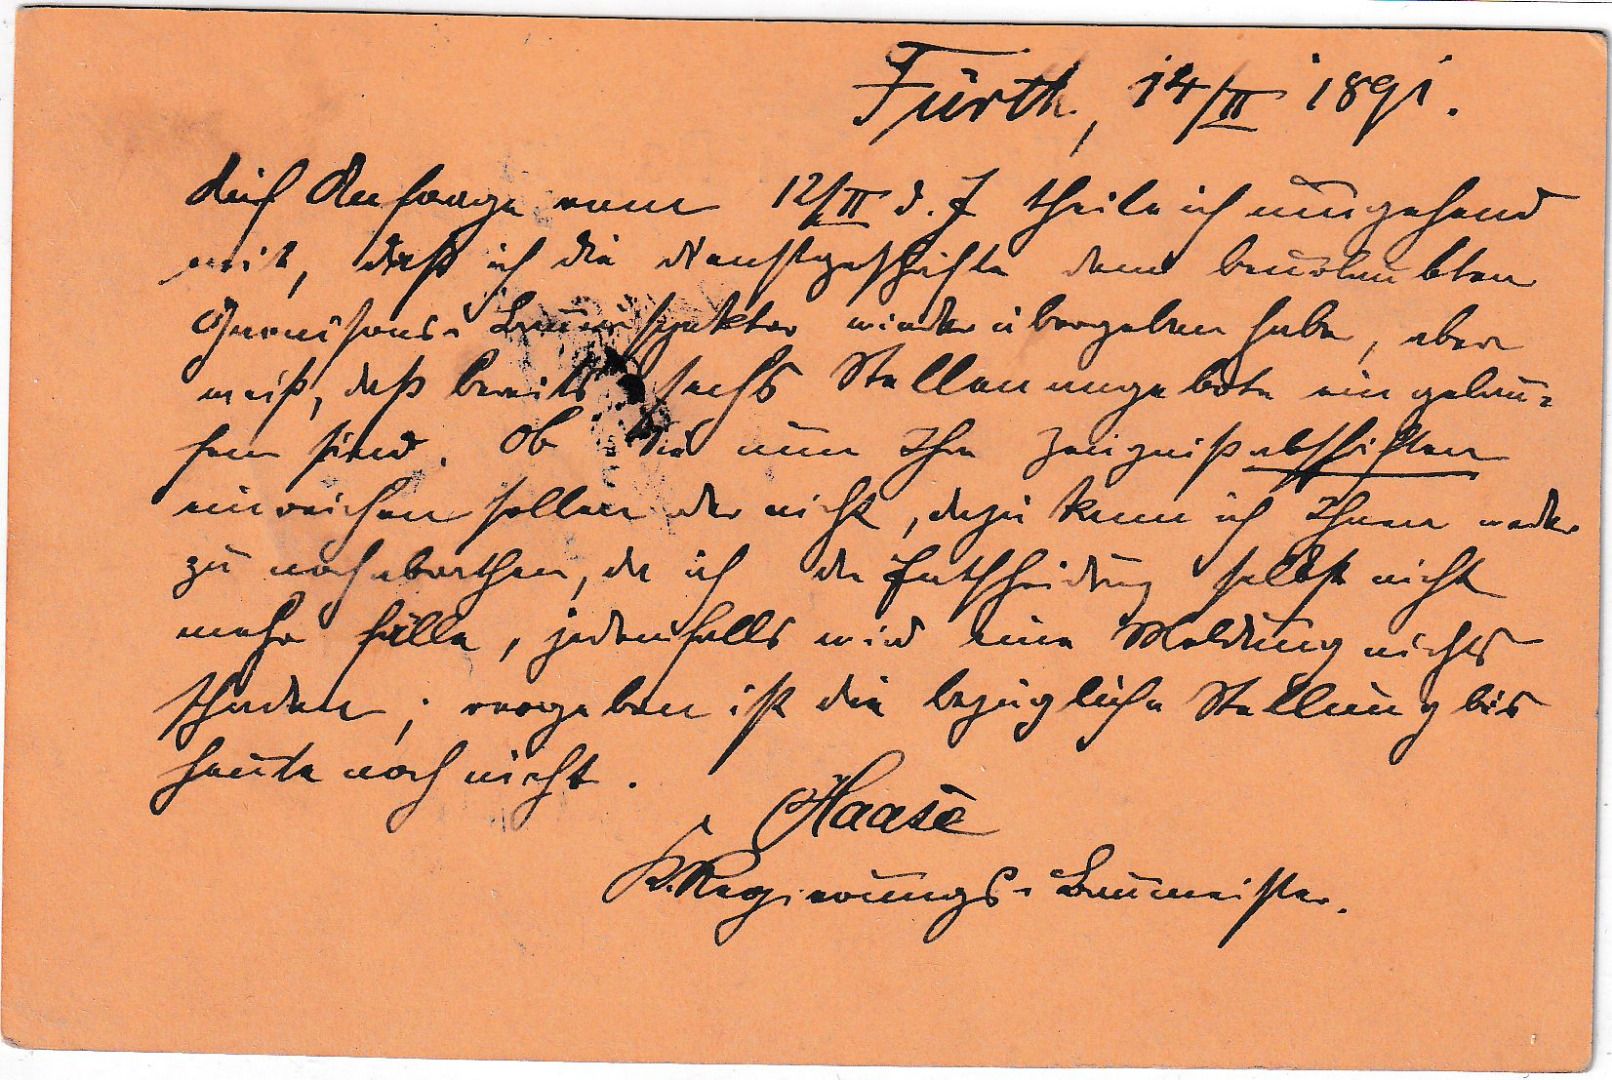 Fürth, 14/II 1891.
Auf Anfrage vom 12/II d. J theile ich umgehend
mit, daß ich die Dienstgeschäfte dem beurlaubten
Garnisons-Bauinspektor wieder übergeben habe, aber
weiß, daß bereits sechs Stellenangebote eingelau-
fen sind. Ob Sie nun Ihre Zeugnißabschriften
einreichen sollen oder nicht, dazu kann ich Ihnen weder
zu noch abrathen, da ich die Entscheidung selbst nicht
mehr fälle, jedenfalls wird eine Meldung nichts
schaden; vergeben ist die bezügliche Stellung bis
heute noch nicht.
Haase
K. Regierungs-Baumeister.